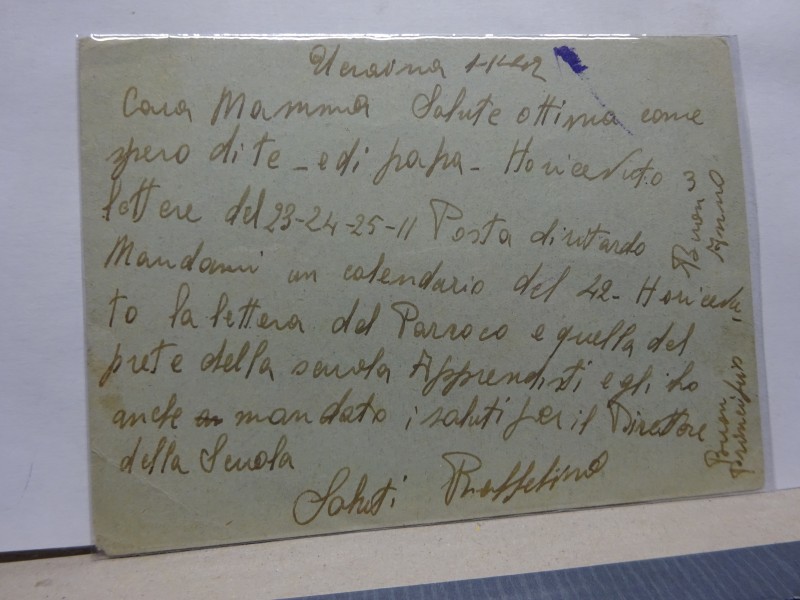 Ucraina 1-1-42
Cara Mamma Salute ottima come
spero di te - e di papa - Ho ricevuto 3
lettere del 23-24-25-11 Posta di ritardo
Mandami un calendario del 42 - Ho ricevu
to la lettera del Parroco e quella del
prete della scuola Apprendisti e gli ho
anche mandato i saluti per il Direttore
della Scuola
Saluti Raffelino
Buon principio
Buon Anno